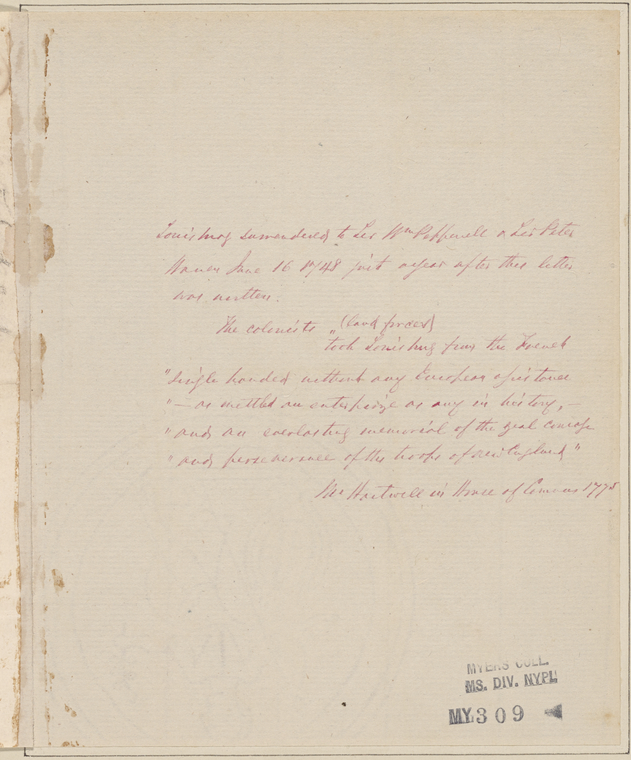 Louisburg surrendered to Sir Wm Pepperell & Sir Peter
Warren June 16 1748 just a year after this letter
was written.
The colonists (land forces)
took Louisburg from the French
"single handed without any European assistance
"— as mettled an enterprize as any in history, —
"and an everlasting memorial of the zeal courage
"and perseverance of the troops of New England"
Mr Hartwell in House of Comons 1775
MYERS COLL.
MS. DIV. NYPL
MY309